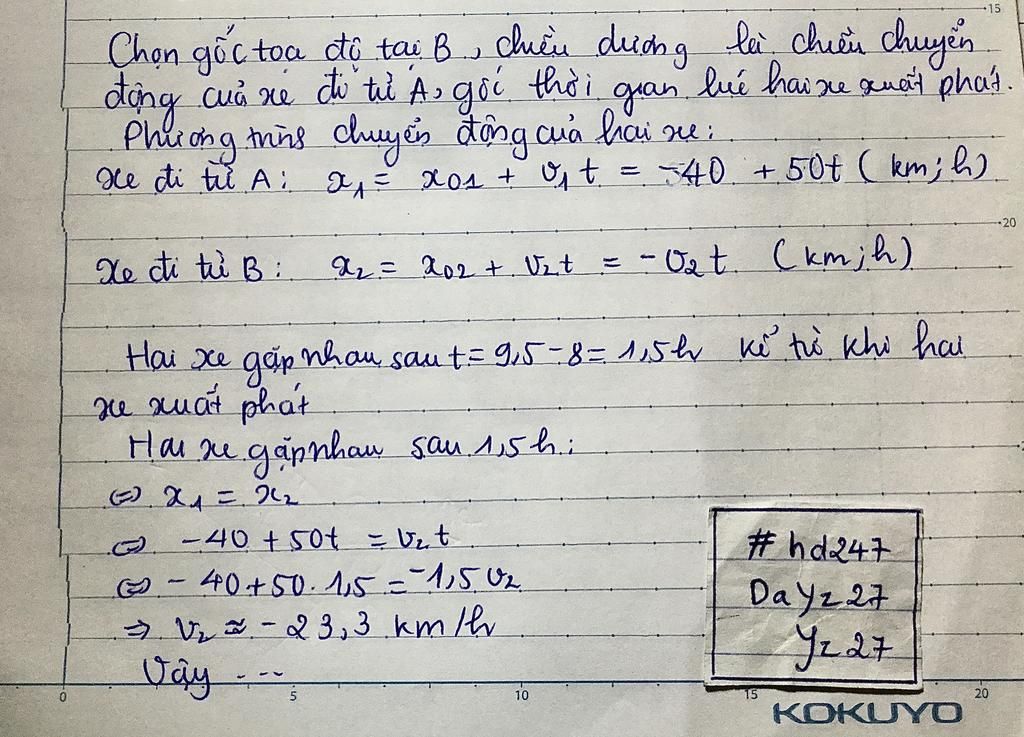 15
Chọn gốc tọa độ tại B, chiều dương là chiều chuyển
động của xe đi từ A, gốc thời gian lúc hai xe xuất phát.
Phương trình chuyển động của hai xe:
Xe đi từ A: x₁ = x₀₁ + v₁t = -40 + 50t (km; h)
20
Xe đi từ B: x₂ = x₀₂ + v₂t = -v₂t (km; h)
Hai xe gặp nhau sau t = 9,5 - 8 = 1,5h kể từ khi hai
xe xuất phát
Hai xe gặp nhau sau 1,5h:
⇔ x₁ = x₂
⇔ -40 + 50t = v₂t
⇔ -40 + 50.1,5 = -1,5v₂
⇒ v₂ ≈ -23,3 km/h
Vậy ...
# hd247
DaYz27
Yz27
0 5 10 15 20
KOKUYO